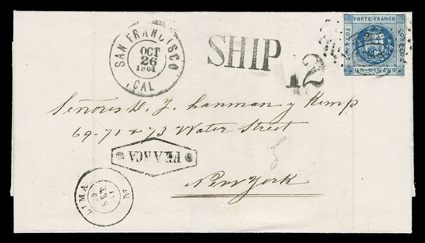 SAN FRANCISCO
OCT
26
1861
CAL
SHIP
12
PORTE FRANCO
CORREOS
UN DINERO
Señores D. J. Lanman y Kemp
69-71 & 73 Water Street
FRANCA
New York
LIMA